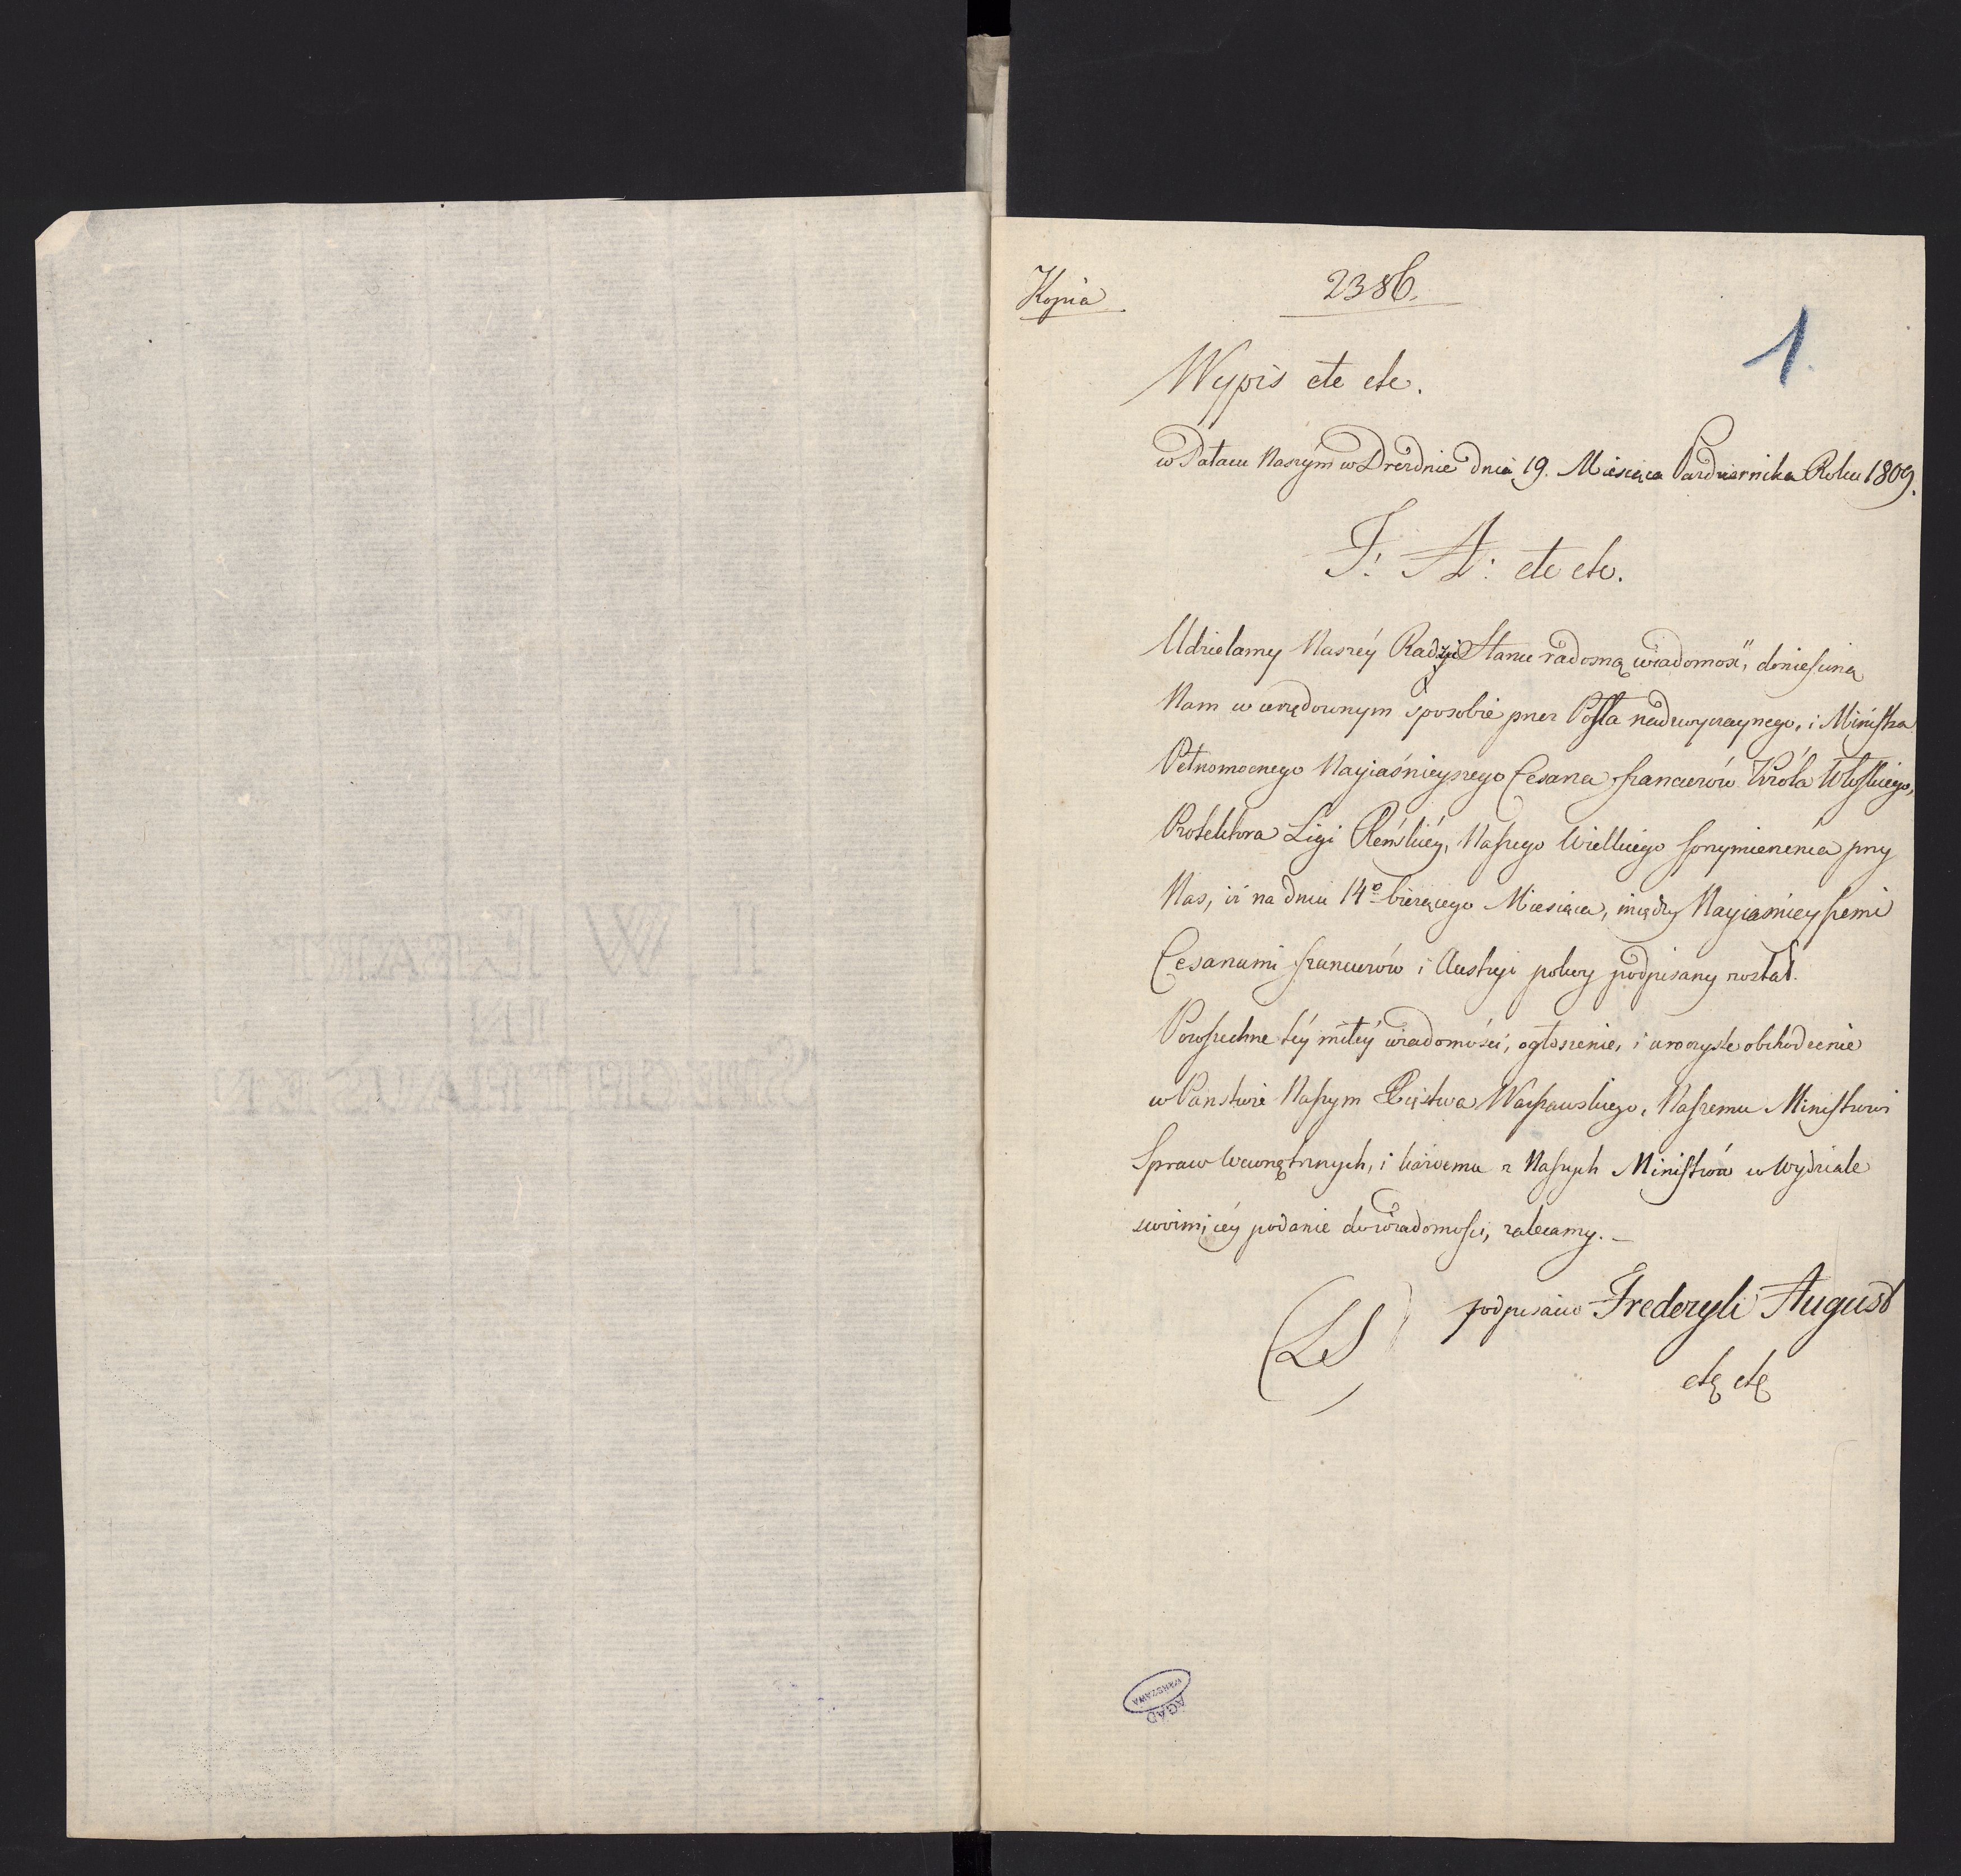 Kopia
2386.
1.
Wypis etc etc.
w Pałacu Naszym w Dreźnie dnia 19. Miesiąca Października Roku 1809.
F: A: etc etc.
Udzielamy Naszéy Radzie Stanu radosną wiadomość, doniesioną
Nam w urzędownym sposobie przez Posła nadzwyczaynego, i Ministra
Pełnomocnego Nayiaśnieyszego Cesarza francuzów Króla Włoskiego,
Protektora Ligi Reńskiéy, Naszego Wielkiego sprzymierzeńca przy
Nas, iż na dniu 14o bieżącego Miesiąca, między Nayiaśnieyszemi
Cesarzami francuzów i Austryi pokuy podpisany został.
Powszechne téy miłéy wiadomości, ogłoszenie, i uroczyste obchodzenie
w Państwie Naszym Xięstwa Warszawskiego, Naszemu Ministrowi
Spraw Wewnętrznych, i każdemu z Naszych Ministrów w Wydziale
swoim, iéy podanie do wiadomości, zalecamy. _
podpisano Frederyk August
(LS)
etc etc
AGAD
WARSZAWA
I W LEBART
IN